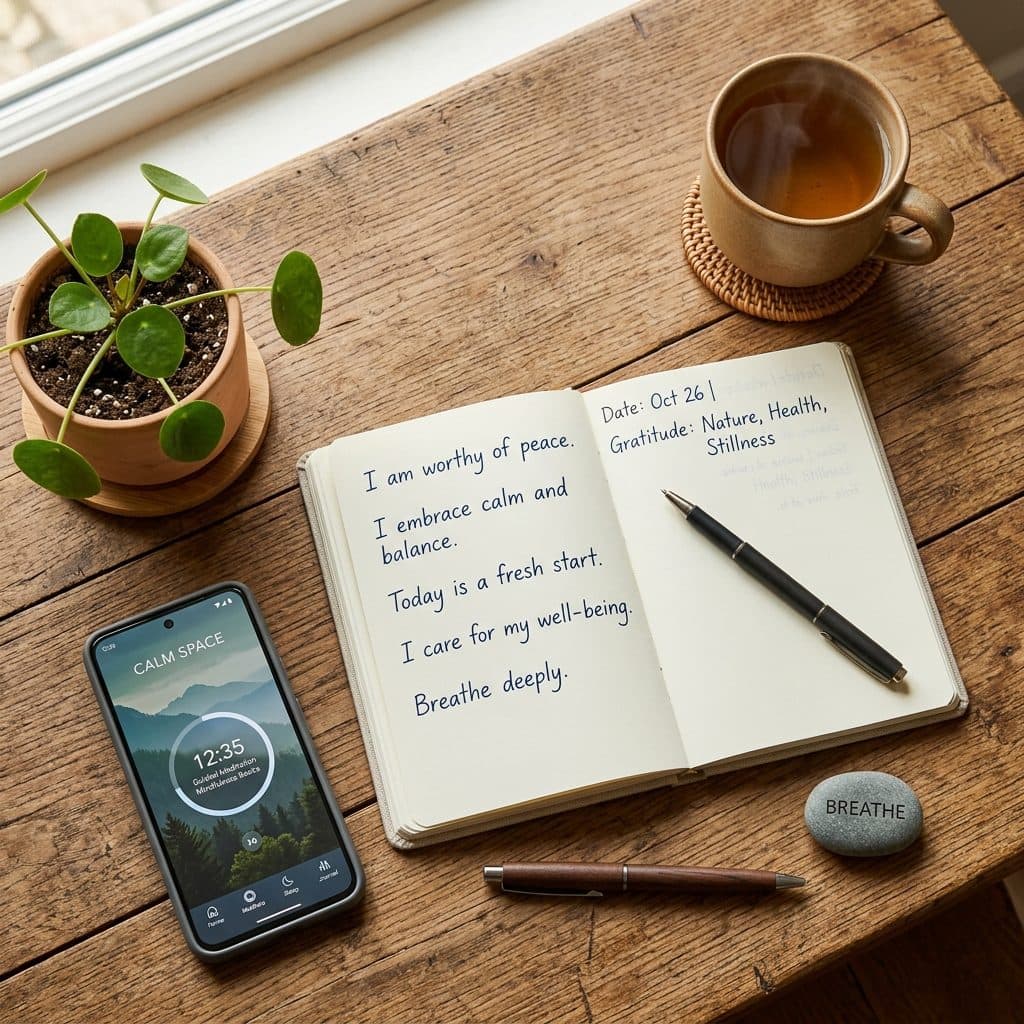 I am worthy of peace.
I embrace calm and
balance.
Today is a fresh start.
I care for my well-being.
Breathe deeply.
Date: Oct 26 |
Gratitude: Nature, Health,
Stillness
CALM SPACE
12:35
Guided Meditation
Mindfulness Basics
Home
Sleep
Journal
BREATHE